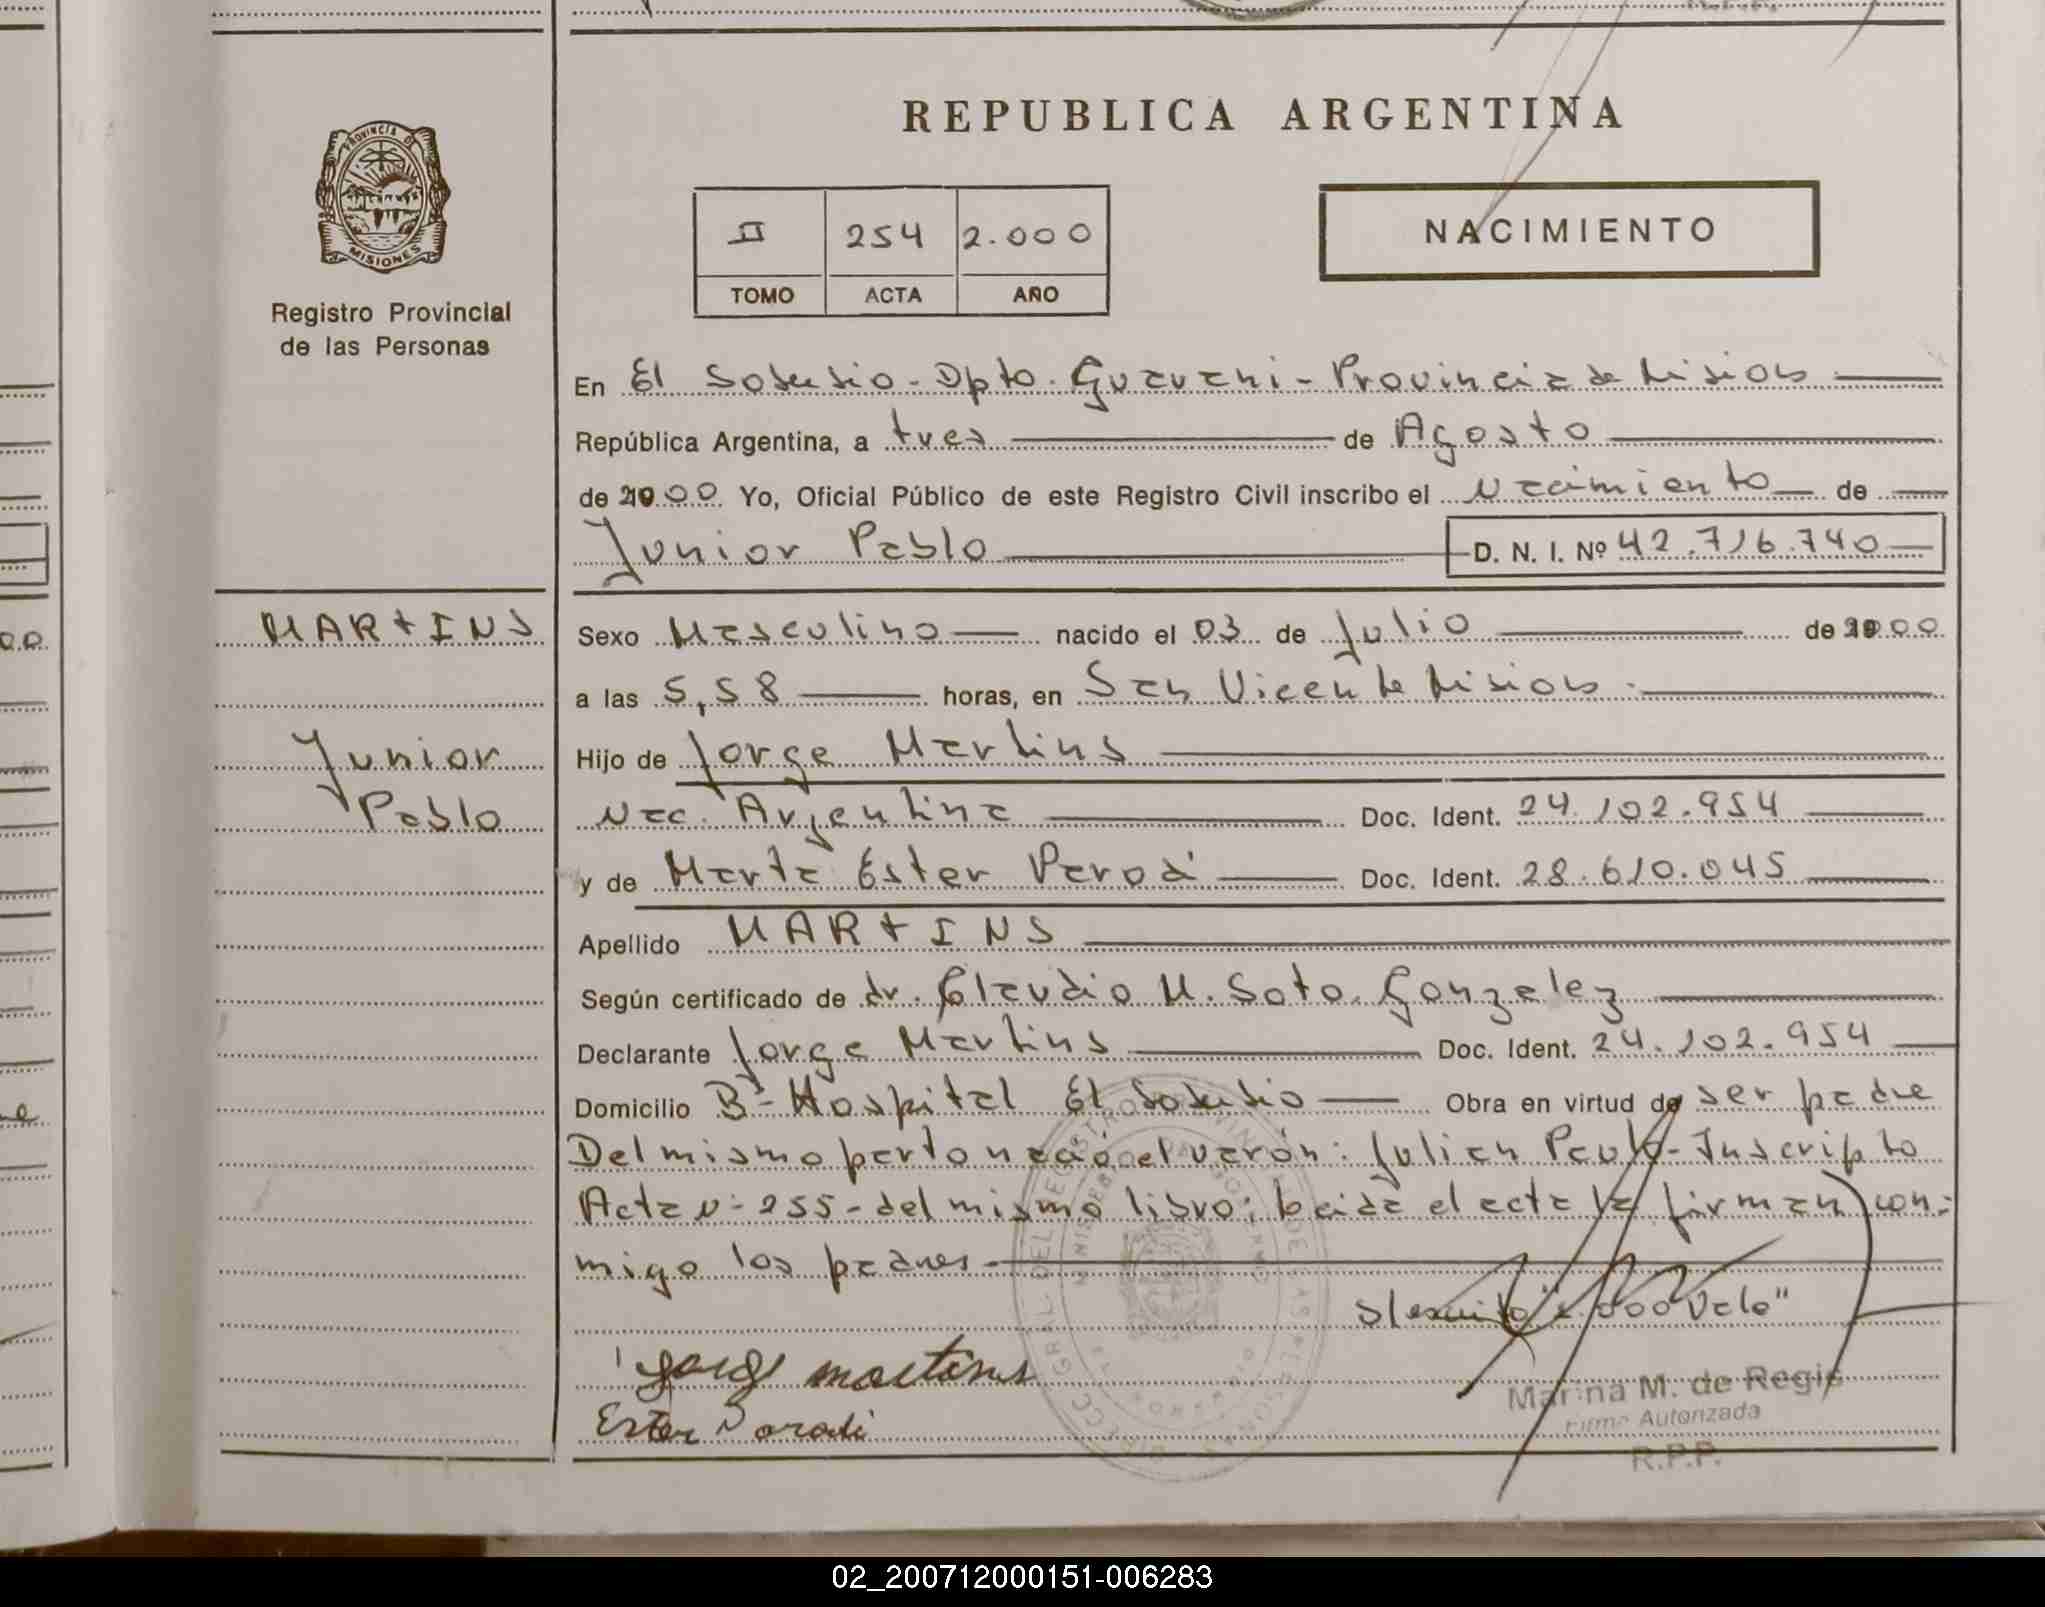 REPUBLICA ARGENTINA
PROVINCIA DE
MISIONES
Registro Provincial
de las Personas
II 254 2.000
TOMO ACTA AÑO
NACIMIENTO
En El Soberbio - Dpto. Guarani - Provincia de Misiones
República Argentina, a tres de Agosto
de 2000 Yo, Oficial Público de este Registro Civil inscribo el Nacimiento de
Junior Pablo D. N. I. Nº 42.716.740
MARTINS
Junior
Pablo
Sexo Masculino nacido el 03 de Julio de 2000
a las 5,58 horas, en San Vicente Misiones.
Hijo de Jorge Martins
Nac. Argentina Doc. Ident. 24.102.954
y de Marta Ester Parodi Doc. Ident. 28.610.045
Apellido MARTINS
Según certificado de dr. Claudio M. Soto Gonzalez
Declarante Jorge Martins Doc. Ident. 24.102.954
Domicilio Bº Hospital El Soberbio Obra en virtud de ser padre
Del mismo parto nació el varón: Julian Paulo - Inscripto
Acta Nº 255 - del mismo libro; leida el acta la firman con-
migo los padres -
S/escrito "2.000 Vale"
Jorge martins
Ester Parodi
Marina M. de Regis
Firma Autorizada
R.P.P.
02_200712000151-006283